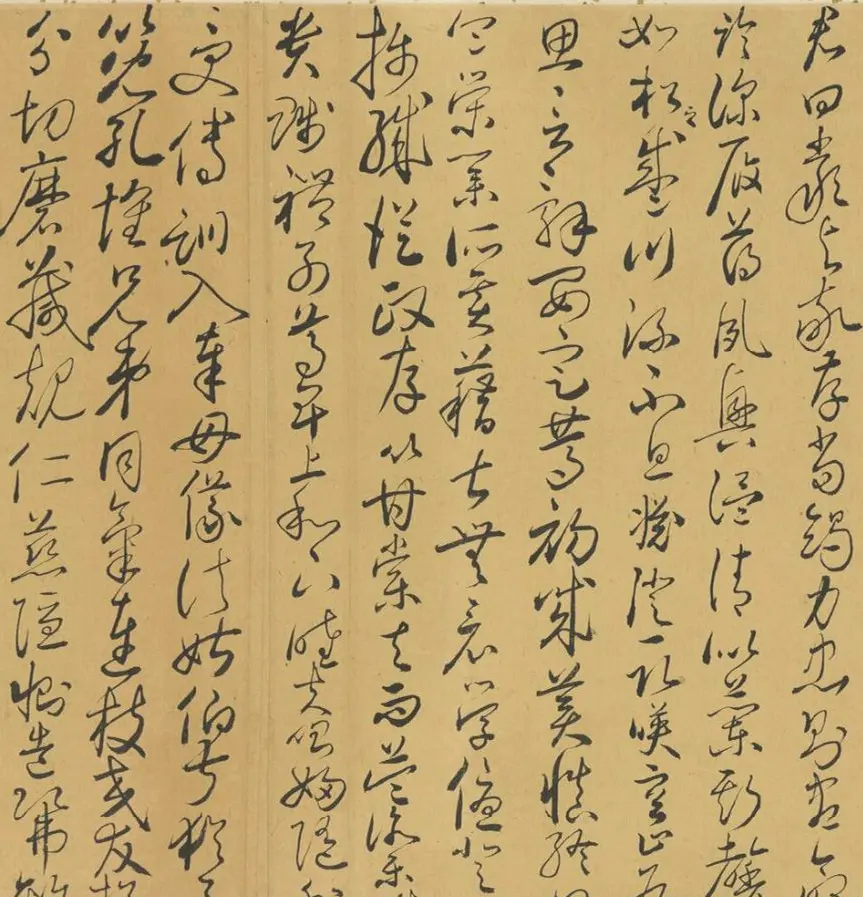 君曰嚴與敬孝當竭力忠則盡命
臨深履薄夙興溫清似蘭斯馨
如松之盛川流不息淵澄取暎容止若
思言辭安定篤初誠美慎終宜
令榮業所基藉甚無竟學優登
攝職從政存以甘棠去而益詠樂殊
貴賤禮別尊卑上和下睦夫唱婦隨外
受傅訓入奉母儀諸姑伯叔猶子
比兒孔懷兄弟同氣連枝交友投
分切磨箴規仁慈隱惻造次弗離